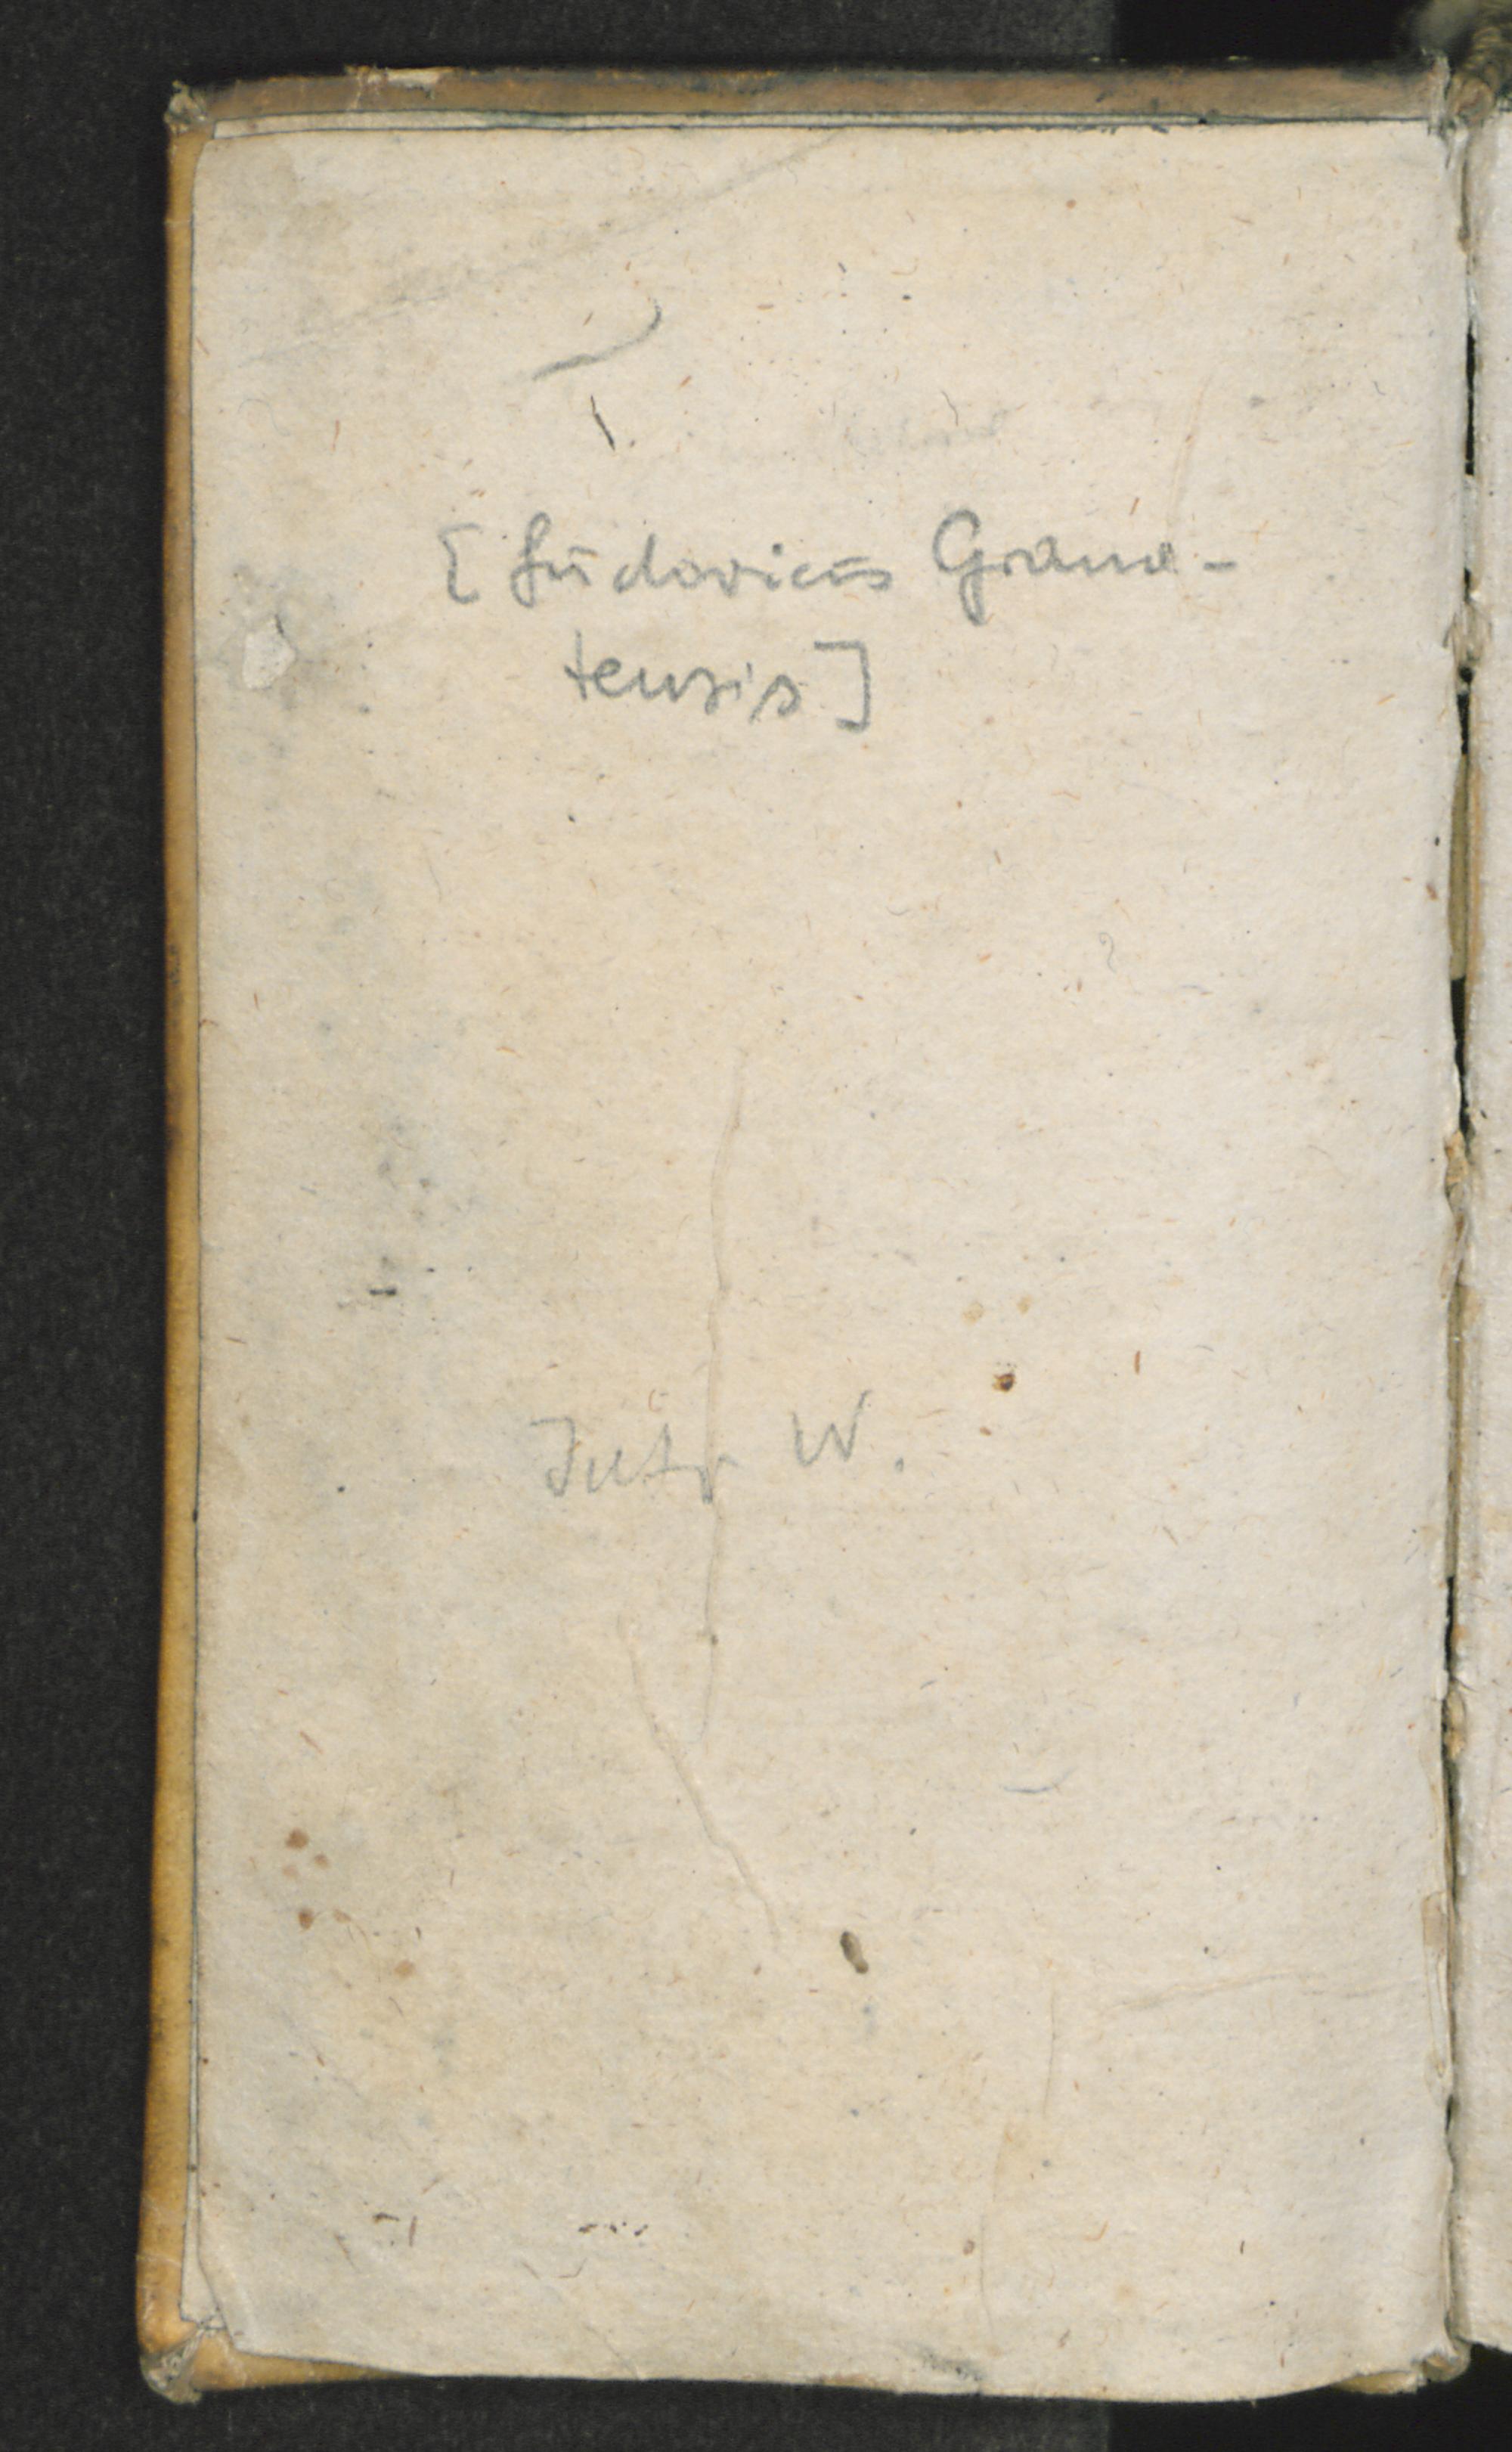 [Ludovicus Grana-
tensis]
W.